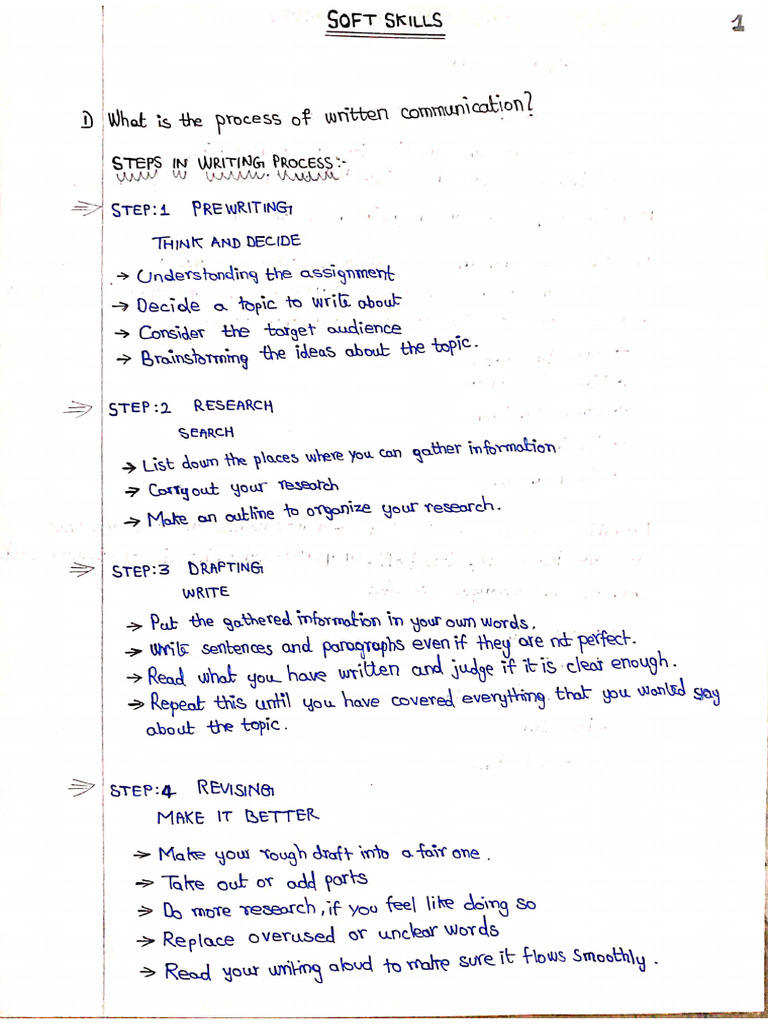 SOFT SKILLS
1
1) What is the process of written communication?
STEPS IN WRITING PROCESS:-
⇒ STEP:1 PREWRITING
THINK AND DECIDE
→ Understanding the assignment
→ Decide a topic to write about
→ Consider the target audience
→ Brainstorming the ideas about the topic.
⇒ STEP:2 RESEARCH
SEARCH
→ List down the places where you can gather information
→ Carryout your research
→ Make an outline to organize your research.
⇒ STEP:3 DRAFTING
WRITE
→ Put the gathered information in your own words.
→ Write sentences and paragraphs even if they are not perfect.
→ Read what you have written and judge if it is clear enough.
→ Repeat this until you have covered everything that you wanted say
about the topic.
⇒ STEP:4 REVISING
MAKE IT BETTER
→ Make your rough draft into a fair one.
→ Take out or add parts
→ Do more research, if you feel like doing so
→ Replace overused or unclear words
→ Read your writing aloud to make sure it flows smoothly.